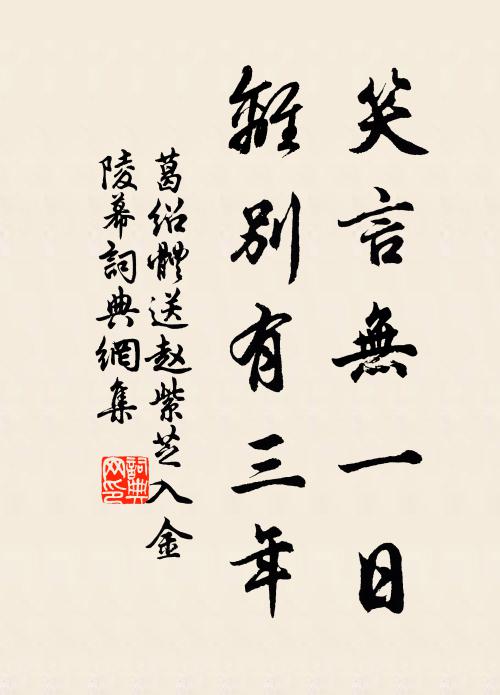 笑言無一日
離別有三年
葛紹體送赵紫芝入金
陵幕詞典網集
詞典
网印